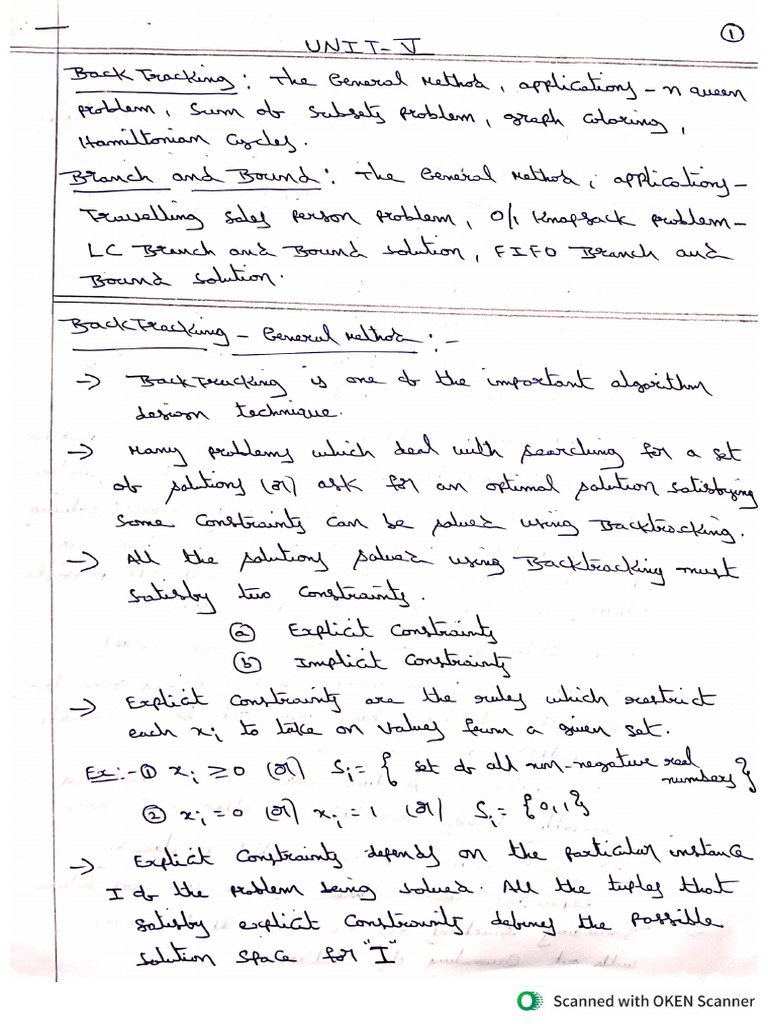 ①
UNIT-V
BackTracking: The General Method, applications - n queen
problem, Sum of subsets problem, graph coloring,
Hamiltonian Cycles.
Branch and Bound: The General Method, applications-
Travelling sales person problem, 0/1 Knapsack problem-
LC Branch and Bound solution, FIFO Branch and
Bound solution.
BackTracking - General Method :-
→ BackTracking is one of the important algorithm
design technique.
→ Many problems which deal with searching for a set
of solutions (or) ask for an optimal solution satisfying
some constraints can be solved using Backtracking.
→ All the solutions solved using Backtracking must
satisfy two constraints.
ⓐ Explicit Constraints
ⓑ Implicit Constraints
→ Explicit constraints are the rules which restrict
each xi to take on values from a given set.
Ex:- ① xi ≥ 0 (or) Si = { set of all non-negative real numbers }
② xi = 0 (or) xi = 1 (or) Si = {0,1}
→ Explicit Constraints depends on the particular instance
I of the problem being solved. All the tuples that
satisfy explicit constraints defines the possible
solution space for "I"
Scanned with OKEN Scanner